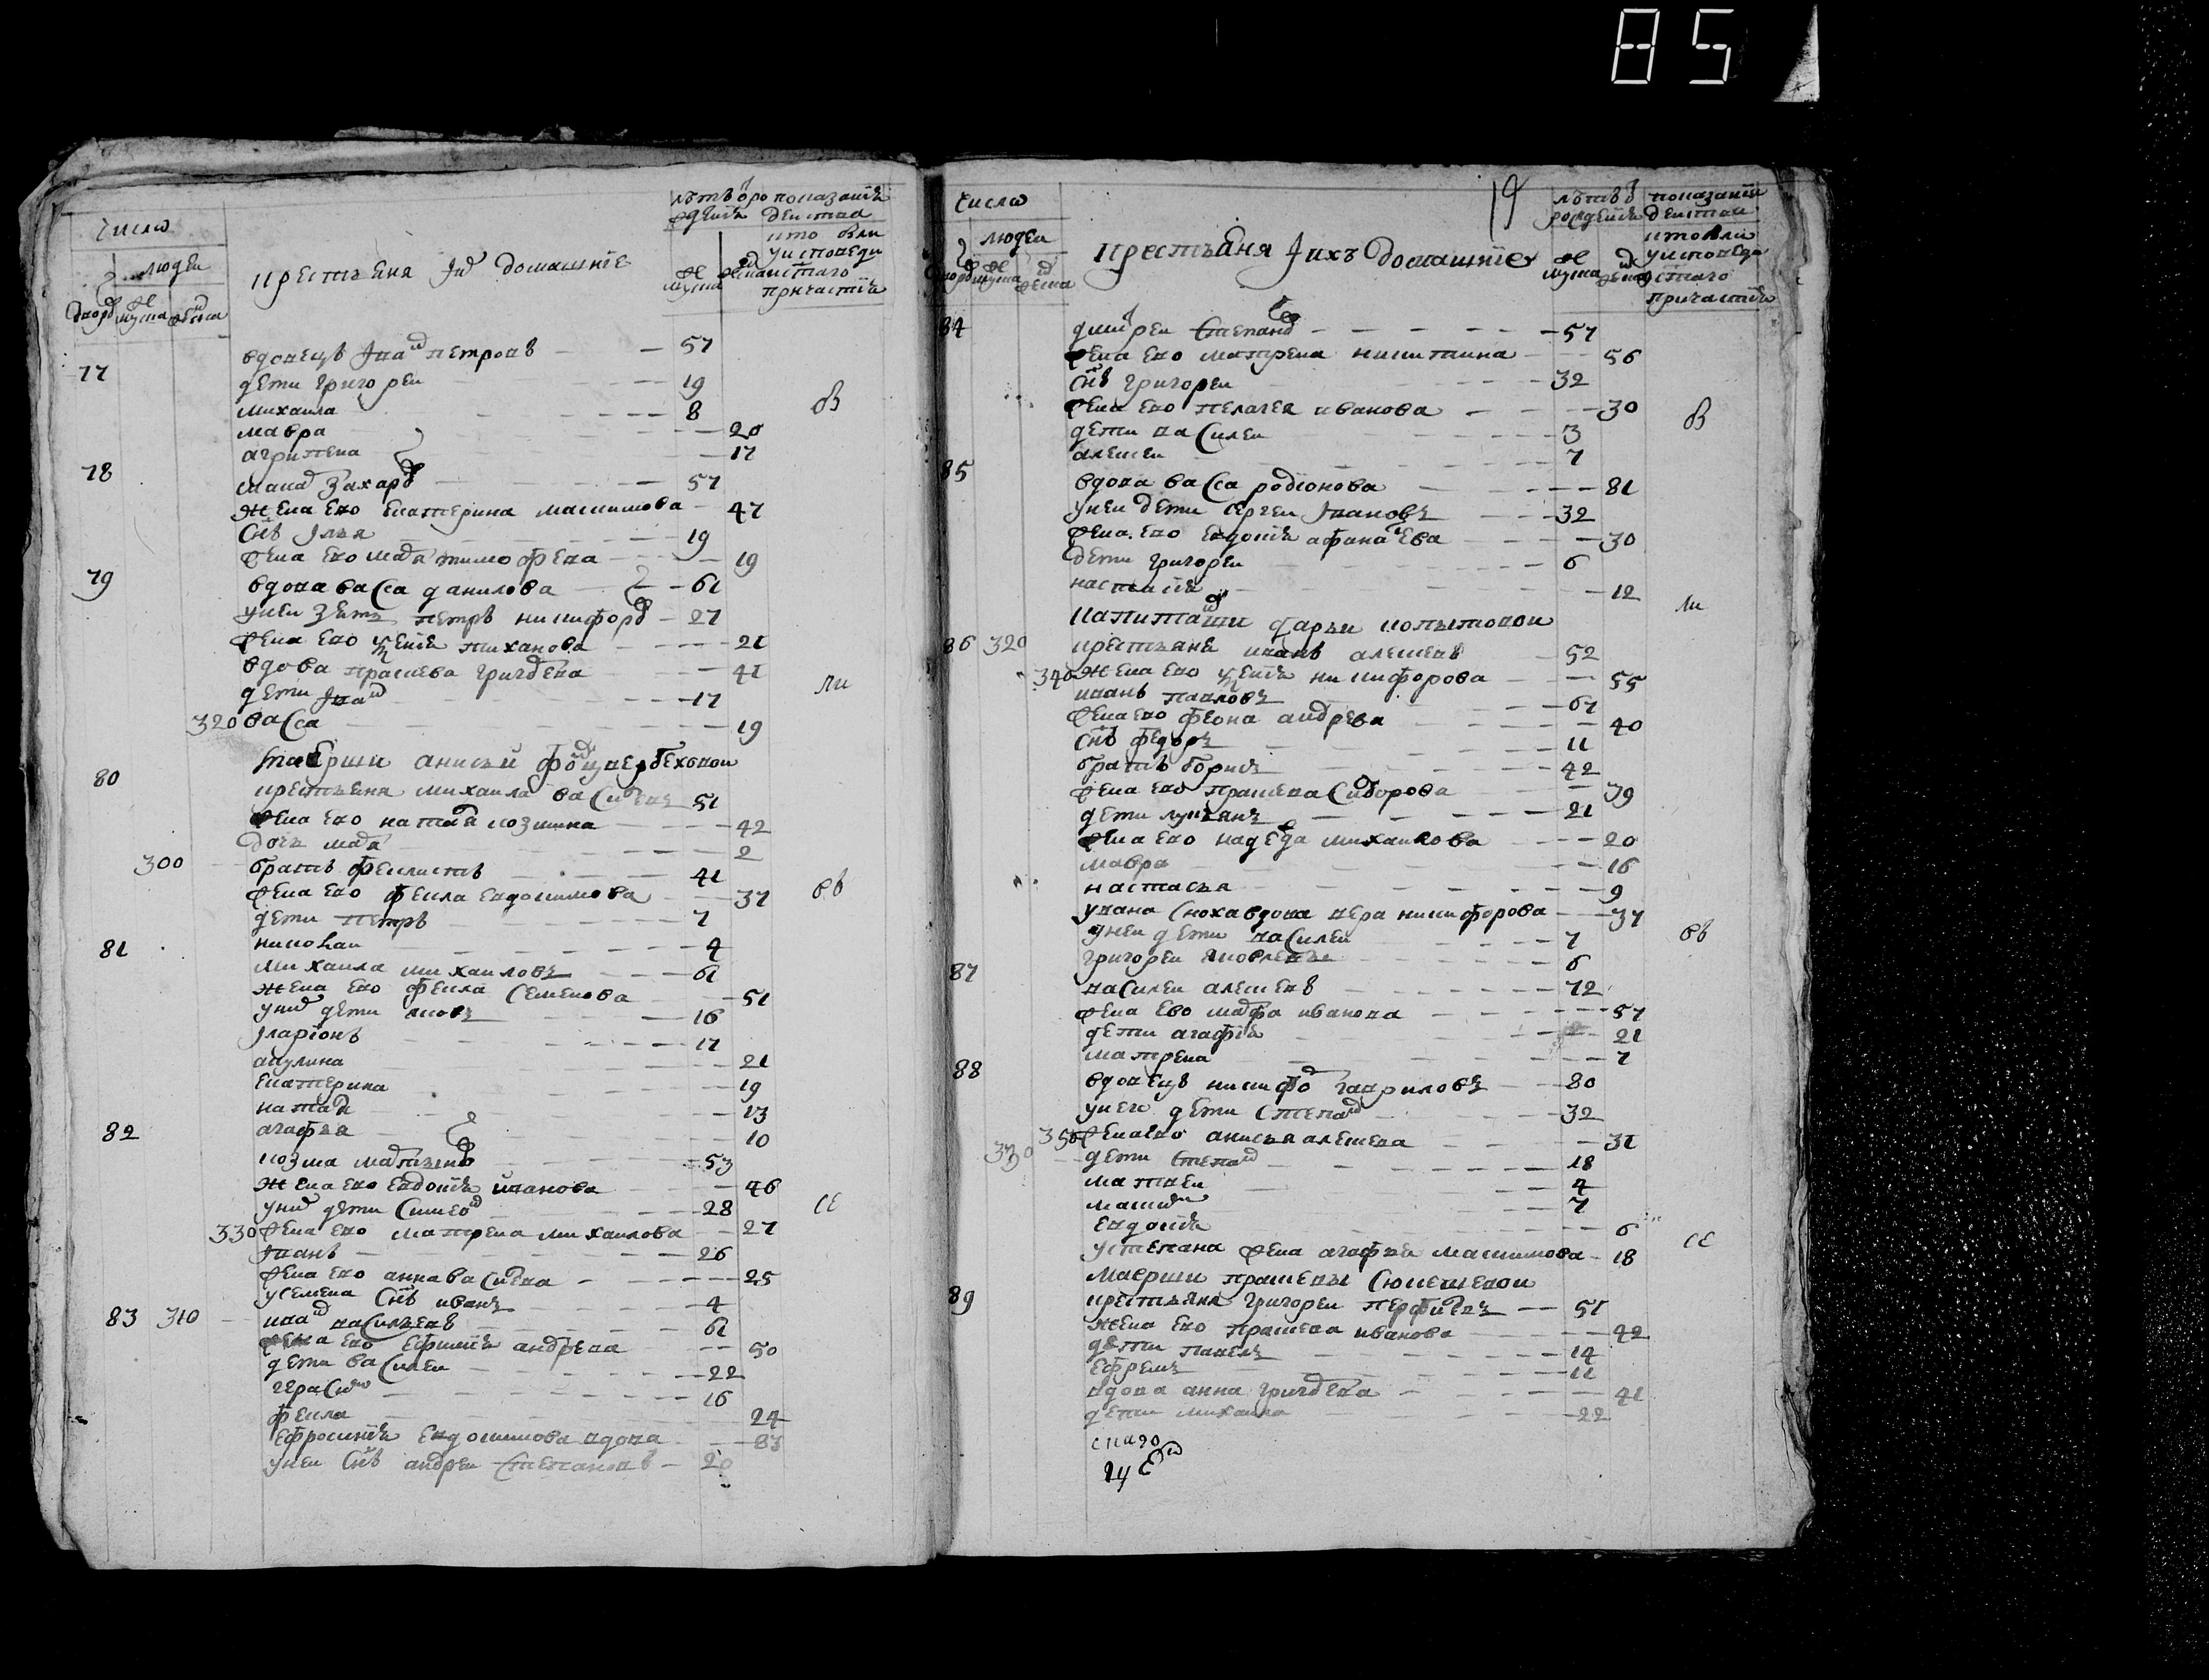 85
число
людеи
дворо муска женска
крестьяня их домашние
летъ от рождения
муска женска
показание деиства кто был у исповеди и святаго причастия
77 вдовецъ Иван петровъ 57
дети григореи 19
михаила 8 в
мавра 20
агрипена 17
78 иван Захаров 57
жена ево екатерина максимова 47
снъ Илья 19
жена ево мафа тимофеева 19
79 вдова васса данилова 61
у неи зять петръ никифоров 27
жена ево ксения тиханова 21
вдова праскева григорева 41
дети Иван 17 ли
320 васса 19
маерши анисьи
80 крестьяня михаила василевъ 51
жена ево наталя козмина 42
дочь мафа 2
300 братъ феклистъ 41
жена ево фекла евдокимова 37 бы
дети петръ 7
николаи 4
81 михаила михаиловъ 61
жена ево фекла семенова 51
у них дети яковъ 16
Иларионъ 17
акулина 21
екатерина 19
наталя 13
агафья 10
82 козма матвеевъ 53
жена ево евдокия иванова 46
у них дети симеон 28 се
330 жена ево матрена михаилова 27
Иванъ 26
жена ево анна василева 25
у семена снъ иванъ 4
83 310 иван васильевъ 61
жена ево ефимия андреева 50
дети василеи 22
герасим 16
фекла 24
ефросиния евдокимова вдова 83
у неи снъ андреи степановъ 20
19
число
людеи
дворо муска женска
крестьяня Ихъ домашние
летъ от рождения
муска женска
показание деиства кто был у исповеди и святаго причастия
84 дмитреи степанов 57
жена ево матрена никитина 56
снъ григореи 32
жена ево пелагея иванова 30 в
дети василеи 3
алексеи 7
85 вдова васса родионова 81
у неи дети сергеи Ивановъ 32
жена ево евдокия афанасева 30
дети григореи 6
настасия 12
капитанши дарьи копытовои ли
86 320 крестьяня иванъ алексеевъ 52
340 жена ево ксения никифорова 55
иванъ павловъ 67
жена ево феона андреева 40
снъ федоръ 11
братъ борисъ 42
жена ево праскева сидорова 39
дети лукьянъ 21
жена ево надежда михаилова 20
мавра 16
настасья 9
у ивана сноха вдова вера никифорова 37
у неи дети василеи 7 бы
григореи яковлевы 6
87 василеи алексеевъ 72
жена ево мафа иванова 57
дети агафия 21
матрена 7
88 вдовецъ никифор гавриловъ 80
у него дети степан 32
350 жена ево анисья алексеева 31
330 дети степан 18
матвеи 4
максим 7
евдокия 6
у степана жена агафья максимова 18 се
маерши праскевы
89 крестьяня григореи перфилевъ 51
жена ево праскева иванова 42
дети павелъ 14
ефремъ 11
вдова анна григорева 41
дети михаила 22